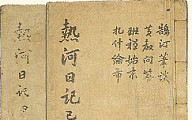 鵠汀筆談
黃敎問答
班禪始末
札什倫布
熱河日記
熱河日記